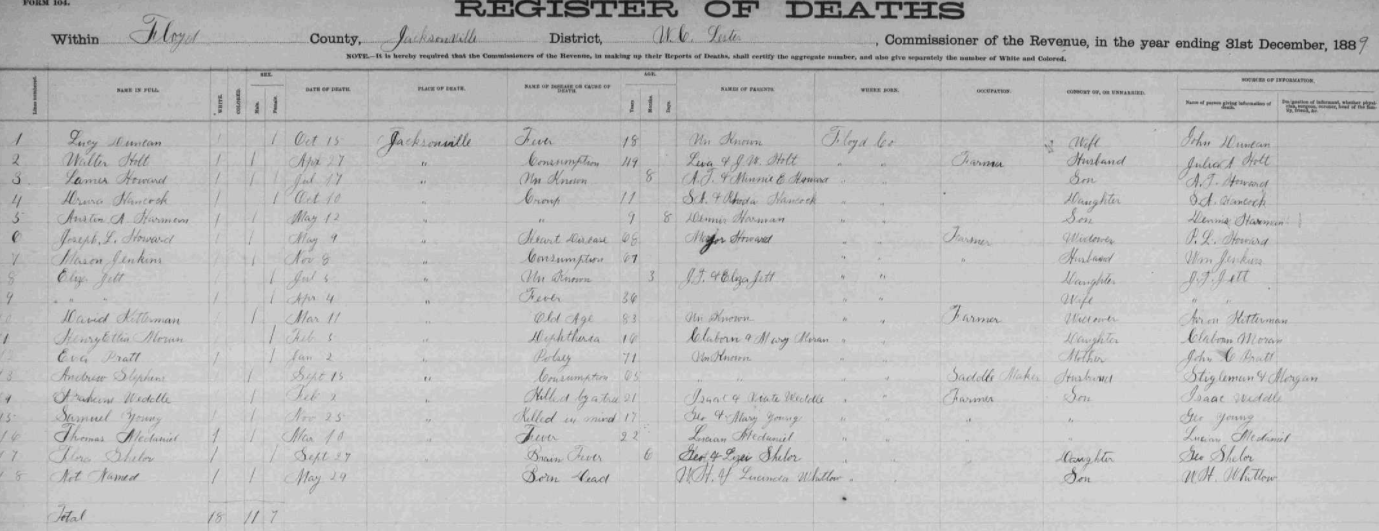 FORM 104.
REGISTER OF DEATHS
Within Floyd County, Jacksonville District, W. C. Lester, Commissioner of the Revenue, in the year ending 31st December, 1889
NOTE.—It is hereby required that the Commissioners of the Revenue, in making up their Reports of Deaths, shall certify the aggregate number, and also give separately the number of White and Colored.
SEX. AGE. SOURCES OF INFORMATION.
NAME IN FULL. WHITE. COLORED. Male. Female. DATE OF DEATH. PLACE OF DEATH. NAME OF DISEASE OR CAUSE OF DEATH. Years Months Days. NAMES OF PARENTS. WHERE BORN. OCCUPATION. CONSORT OF, OR UNMARRIED. Name of person giving information of death.
1 Lucy Duncan 1 1 Oct 15 Jacksonville Fever 18 Un Known Floyd Co Wife John Duncan
2 Walter Holt 1 1 Apr 27 " Consumption 49 & J. W. Holt " " Farmer Husband Julia A Holt
3 Howard 1 1 Jul 17 " Un Known 8 A. T. & Minnie E Howard " " Son A. T. Howard
4 Hancock 1 1 Oct 10 " Croup 11 S A & Rhoda Hancock " " Daughter S. A. Hancock
5 Austin A Harmon 1 1 May 12 " " 9 8 Dennis Harman " " Son Dennis Harman
6 Joseph L. Howard 1 1 May 9 " Heart Disease 68 Major Howard " " Farmer Widower P. L. Howard
7 Mason Jenkins 1 1 Nov 8 " Consumption 67 " " " Husband Wm Jenkins
8 Eliza Jett 1 1 Jul 5 " Un Known 3 J. T. & Eliza Jett " " Daughter J. T. Jett
9 " " 1 1 Apr 4 " Fever 36 " " Wife " "
David Kitterman 1 1 Mar 11 " Old Age 83 Un Known " " Farmer Widower Aaron Kitterman
1 Henry Etta Moran 1 1 Feb 5 " Diphtheria 14 Claborn & Mary Moran " " Daughter Claborn Moran
Eva Pratt 1 1 Jan 2 " Palsy 71 Un Known " " Mother John C Pratt
3 Andrew Stephens 1 1 Sept 15 " Consumption 65 " " " " Saddle Maker Husband Stigleman & Morgan
4 Weddle 1 1 Feb 2 " Killed by a tree 21 Isaac & Weddle " " Farmer Son Isaac Weddle
15 Samuel Young 1 1 Nov 25 " Killed in mind 17 Geo & Mary Young " " " " Geo Young
16 Thomas Mcdaniel 1 1 Mar 10 " Fever 22 Lucian Mcdaniel " " " " Lucian Mcdaniel
17 Flora Shelor 1 1 Sept 27 " Brain Fever 6 Geo & Shelor " " Daughter Geo Shelor
8 Not Named 1 1 May 29 Born Dead W. H. & Lucinda Whitlow " " Son W. H. Whitlow
Total 18 11 7